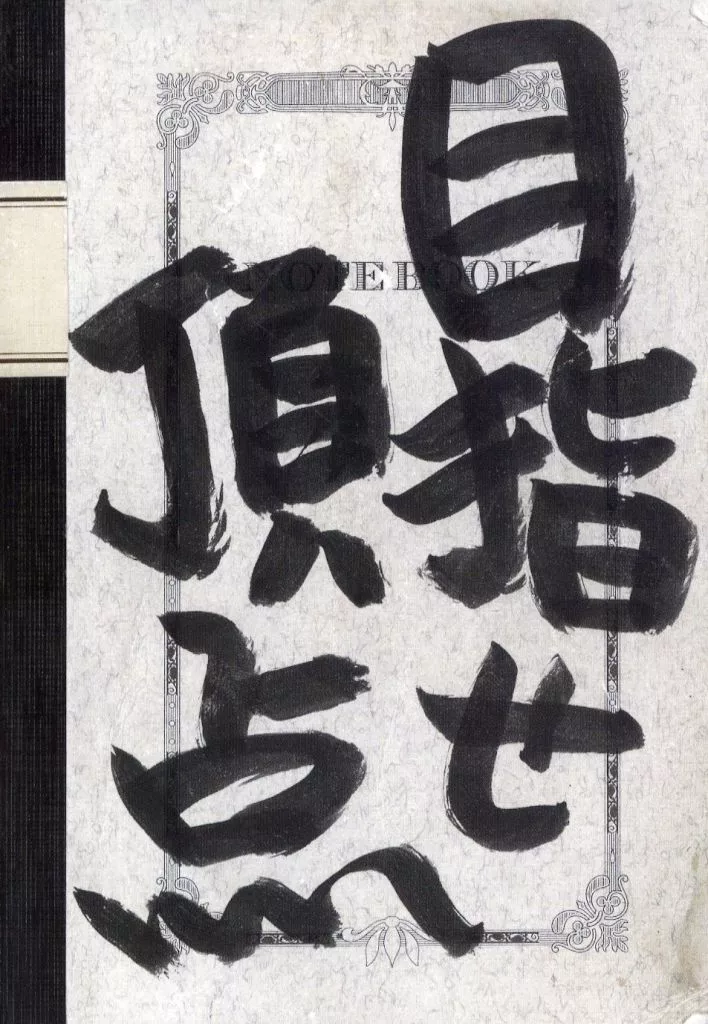 目指せ
頂点
NOTEBOOK